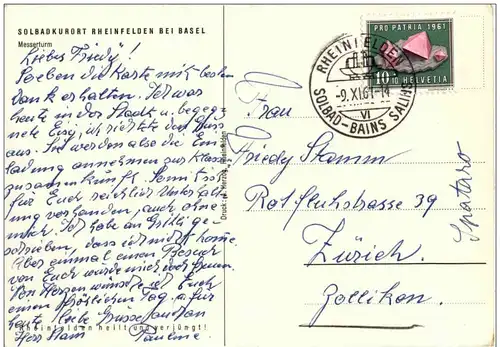 SOLBADKURORT RHEINFELDEN BEI BASEL
Messerturm
Liebes Friedy!
Soeben die Karte mit bestem
Dank erhalten. Ich war
heute in der Stadt u. begeg-
nete Euch, ich richtete den Gruss
aus. Sie werden also die Ein-
ladung annehmen zur Klas-
zusammenkunft. Somit ist
für Euch reichlich Unterhalt-
ung vorhanden, auch ohne
mich. Ich habe an Gritli ge-
schrieben, dass ich nicht komme.
Aber einmal einen Besuch
von Euch würde mich freuen.
Von Herzen wünsche ich Euch
einen fröhlichen Tag u. für
heute liebe Grüsse
Herr Stamm Pauline.
Rheinfelden heilt und verjüngt!
PRO PATRIA 1961
10+10 HELVETIA
RHEINFELDEN
-9.XI.61-14
VI
SOLBAD-BAINS SALINS
Frau
Friedy Stamm
Rotfluhstrasse 39
Zürich.
Zollikon.